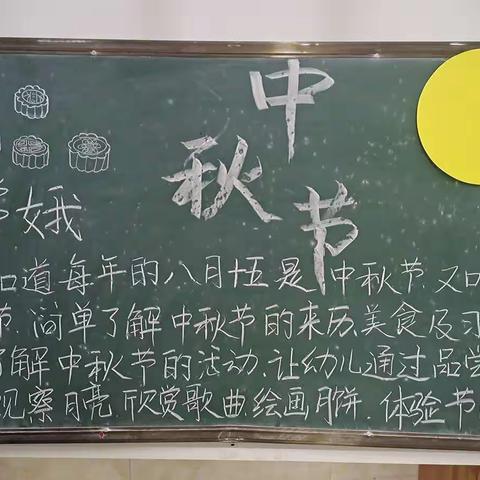 中
秋
节
嫦娥
知道每年的八月十五是中秋节.又叫
节.简单了解中秋节的来历.美食及习
了解中秋节的活动.让幼儿通过品尝
观察月亮.欣赏歌曲.绘画月饼.体验节